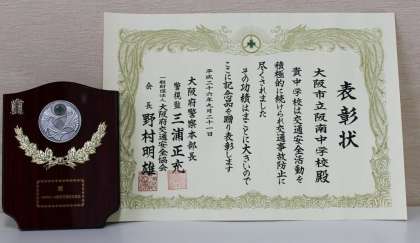 表彰状
大阪市立阪南中学校殿
貴中学校は交通安全活動を
積極的に続けられ交通事故防止に
尽くされました
その功績はまことに大きいので
ここに記念品を贈り表彰します
平成二十六年九月二十一日
大阪府警察本部長
警視監 三浦正充
一般財団法人 大阪府交通安全協会
会長 野村明雄